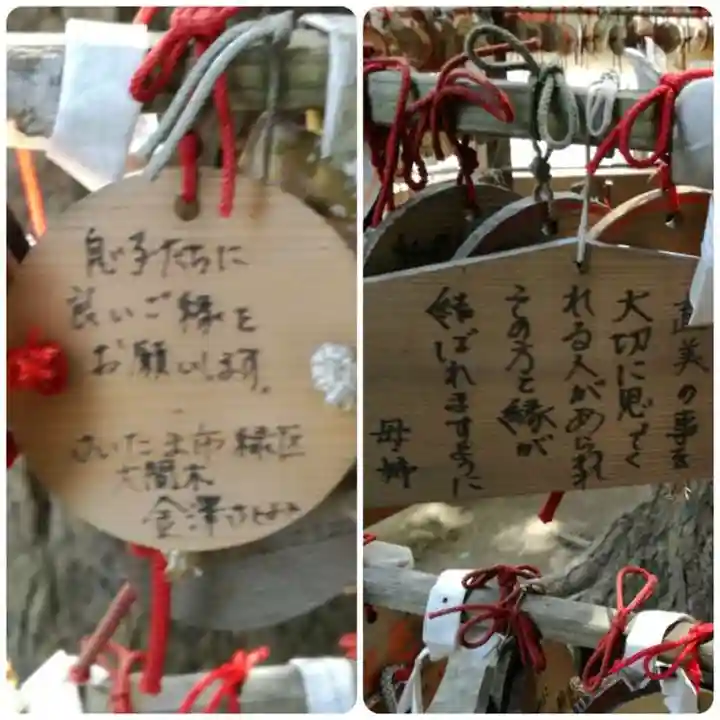 息子たちに
良いご縁を
お願いします。
さいたま市緑区
大間木
金澤さとみ
直美の事を
大切に思てく
れる人があらわれ
その方と縁が
結ばれますように
母姉